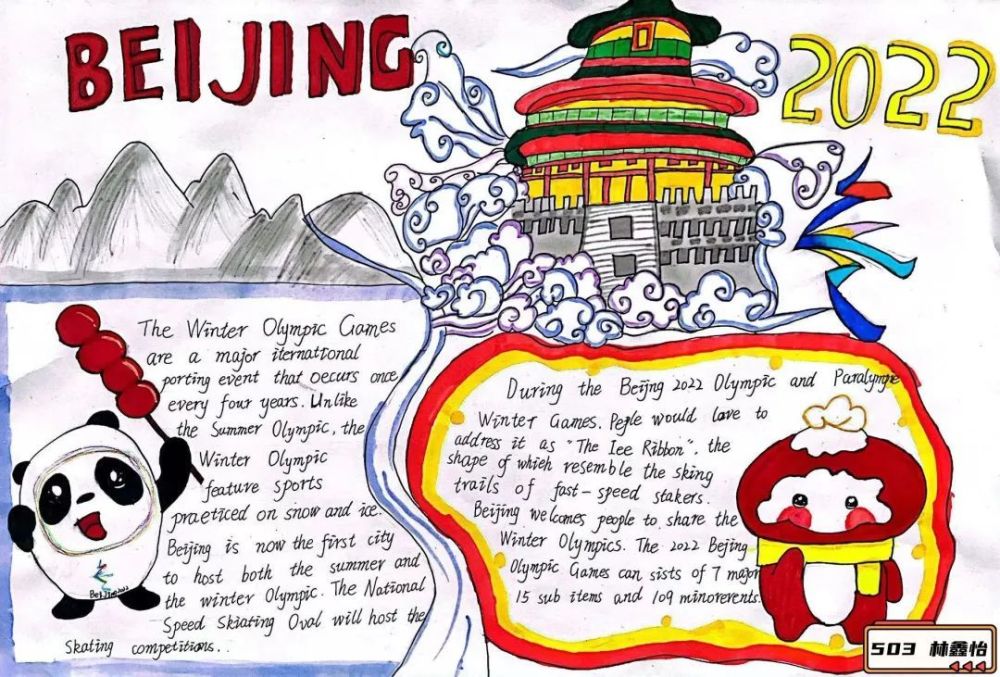 BEIJING
2022
The Winter Olympic Games
are a major iternational
porting event that occurs once
every four years. Unlike
the Summer Olympic, the
Winter Olympic
feature sports
practiced on snow and ice.
Beijing is now the first city
to host both the summer and
the winter Olympic. The National
Speed Skiating Oval will host the
Skating competitions..
Beijing2022
During the Beijng 2022 Olympic and Paralympic
Winter Games. Peple would love to
address it as "The Iee Ribbon". the
shape of which resemble the sking
trails of fast-speed stakers.
Beijing welcomes people to share the
Winter Olympics. The 2022 Bejing
Olympic Games can sists of 7 major
15 sub items and 109 minorevents.
503 林鑫怡